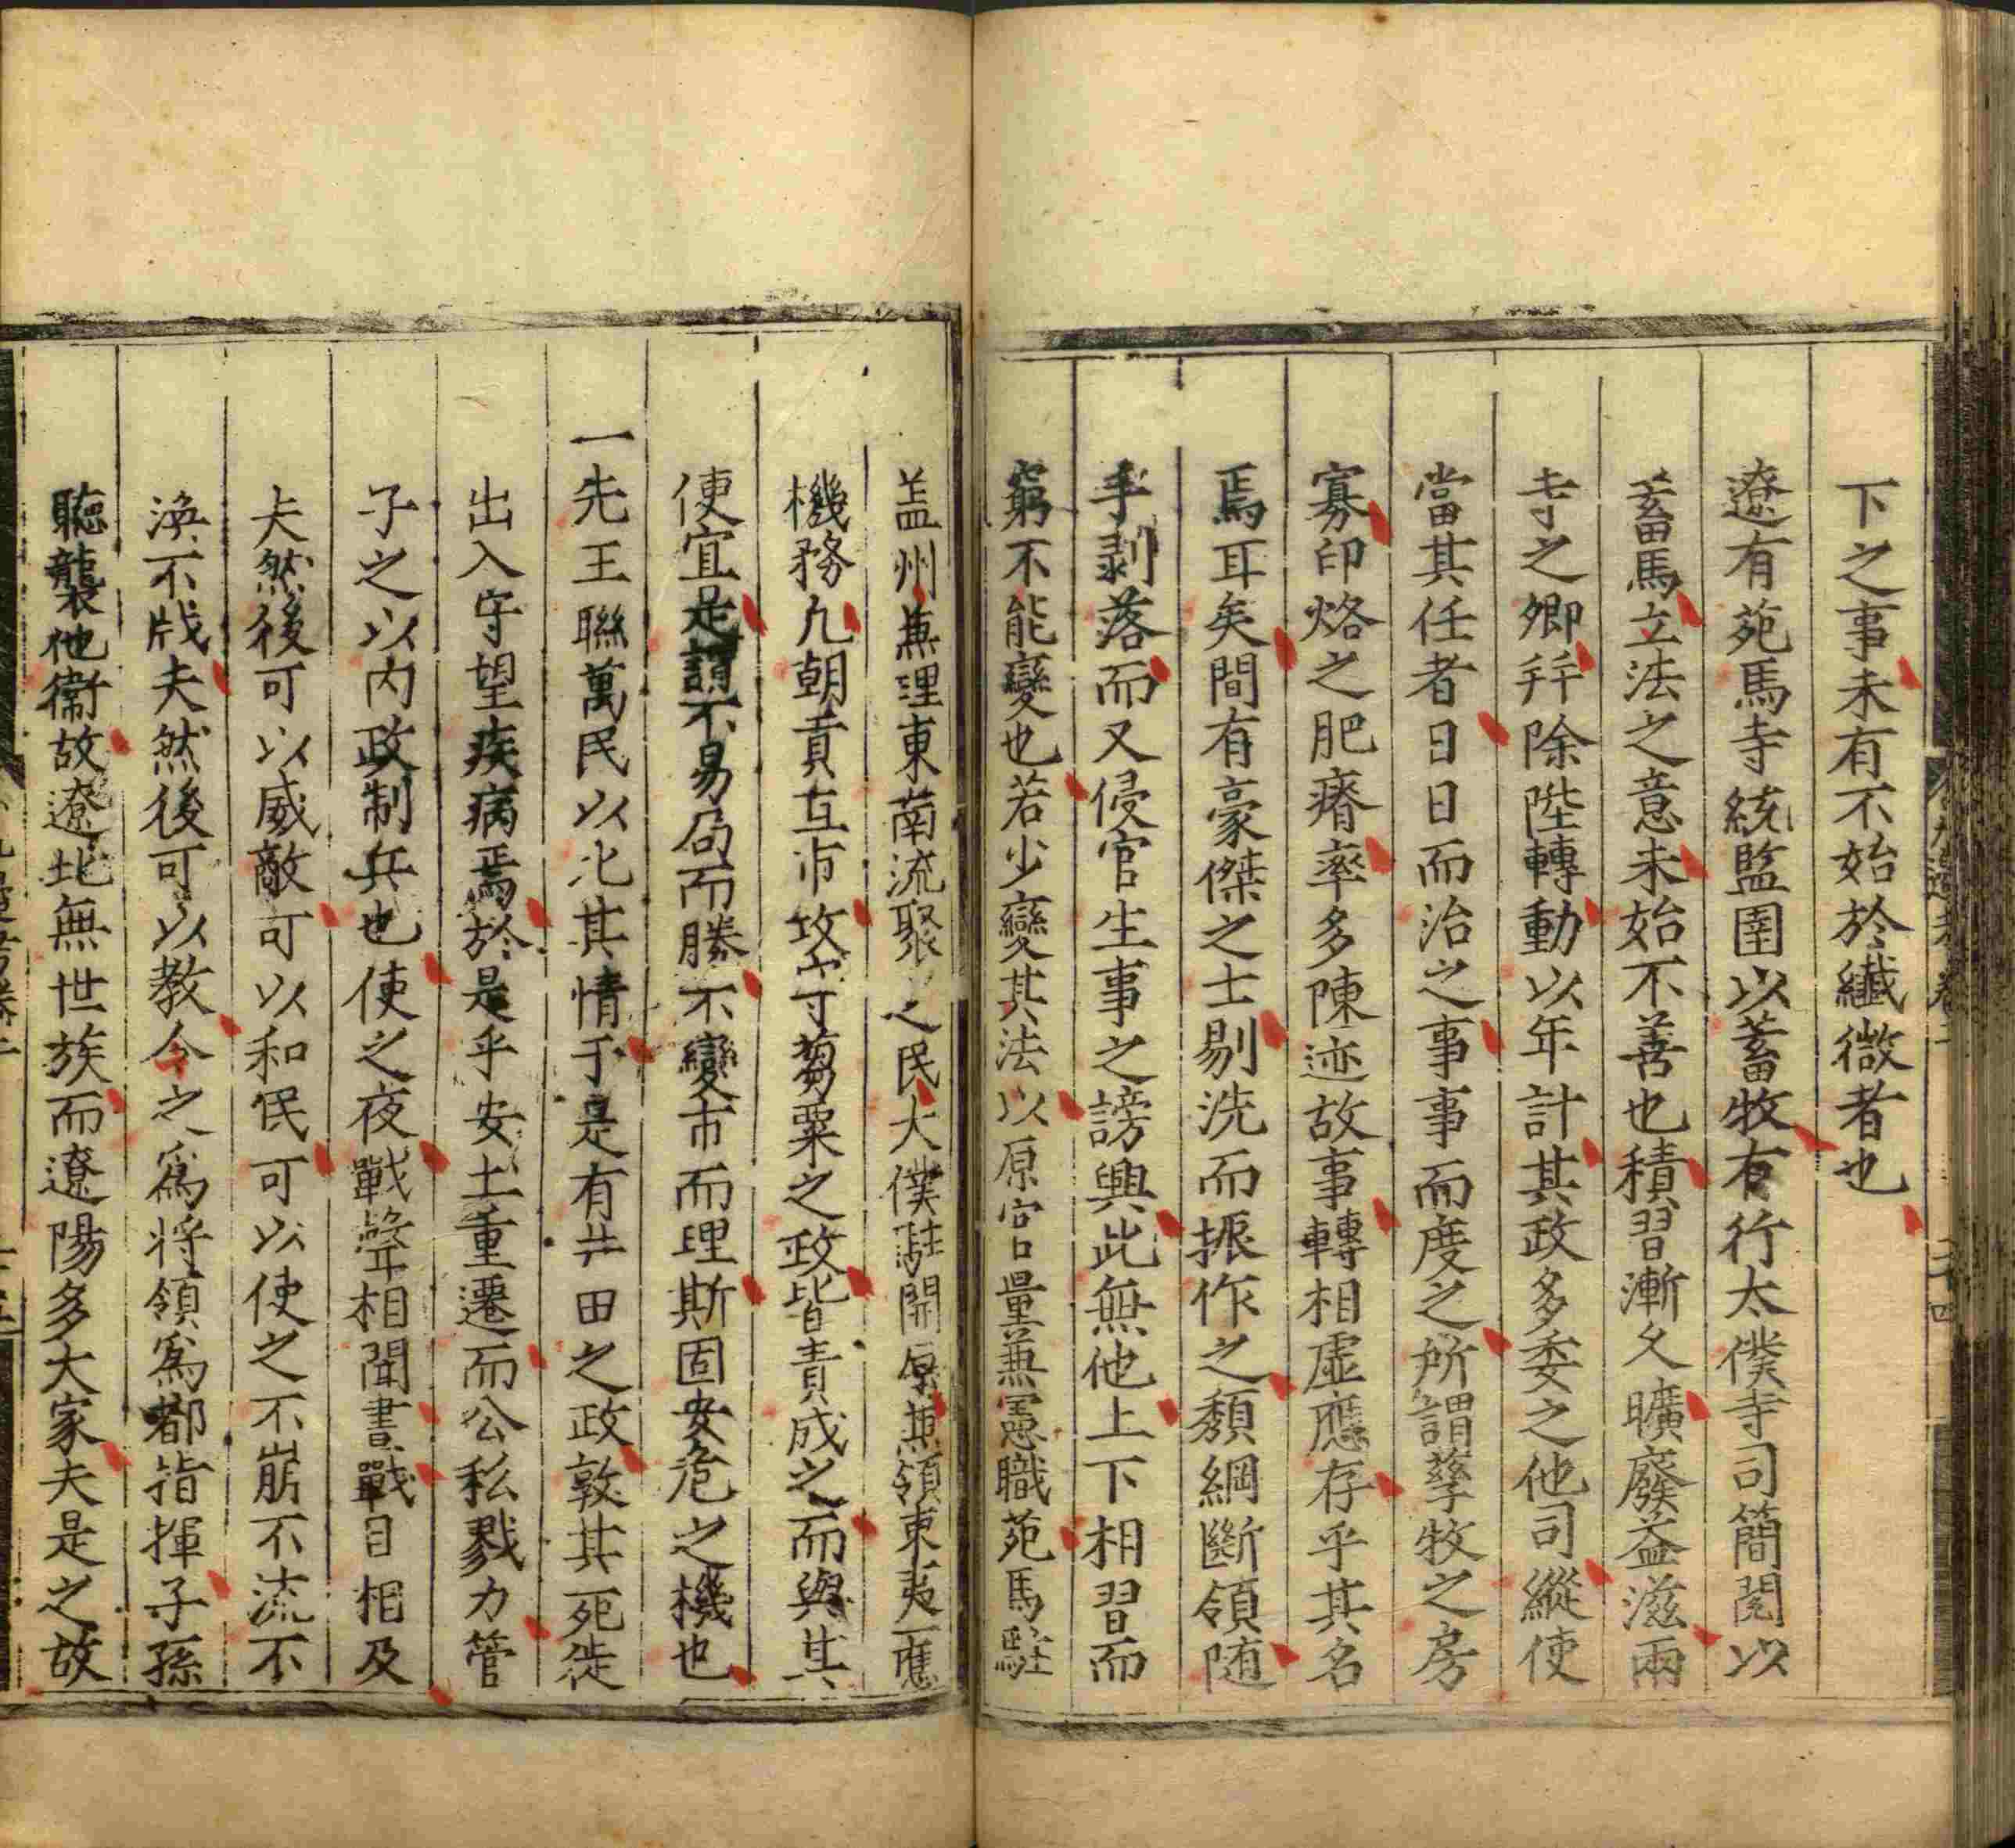 下之事未有不始於纖微者也
遼有苑馬寺統監圉以蓄牧有行太僕寺司簡閱以
蓄馬立法之意未始不善也積習漸久曠廢益滋兩
寺之卿拜除陞轉動以年計其政多委之他司縱使
當其任者日日而治之事事而度之所謂孳牧之房
寡印烙之肥瘠率多陳迹故事轉相虛應存乎其名
焉耳矣間有豪傑之士剔洗而振作之頹綱斷領随
手剥落而又侵官生事之謗興此無他上下相習而
窮不能變也若少變其法以原官量兼憲職苑馬駐
盖州兼理東南流聚之民大僕駐開原兼領東夷一應
機務凢朝貢互市攻守芻粟之政皆責成之而與其
便宜是謂不易局而勝不變市而理斯固安危之機也
一先王聯萬民以比其情于是有井田之政敦其死徙
出入守望疾病焉於是乎安土重遷而公私戮力管
子之以內政制兵也使之夜戰聲相聞晝戰目相及
夫然後可以威敵可以和民可以使之不崩不流不
渙不戕夫然後可以教令之爲将領爲都指揮子孫
聽襲他衞故遼北無世族而遼陽多大家夫是之故